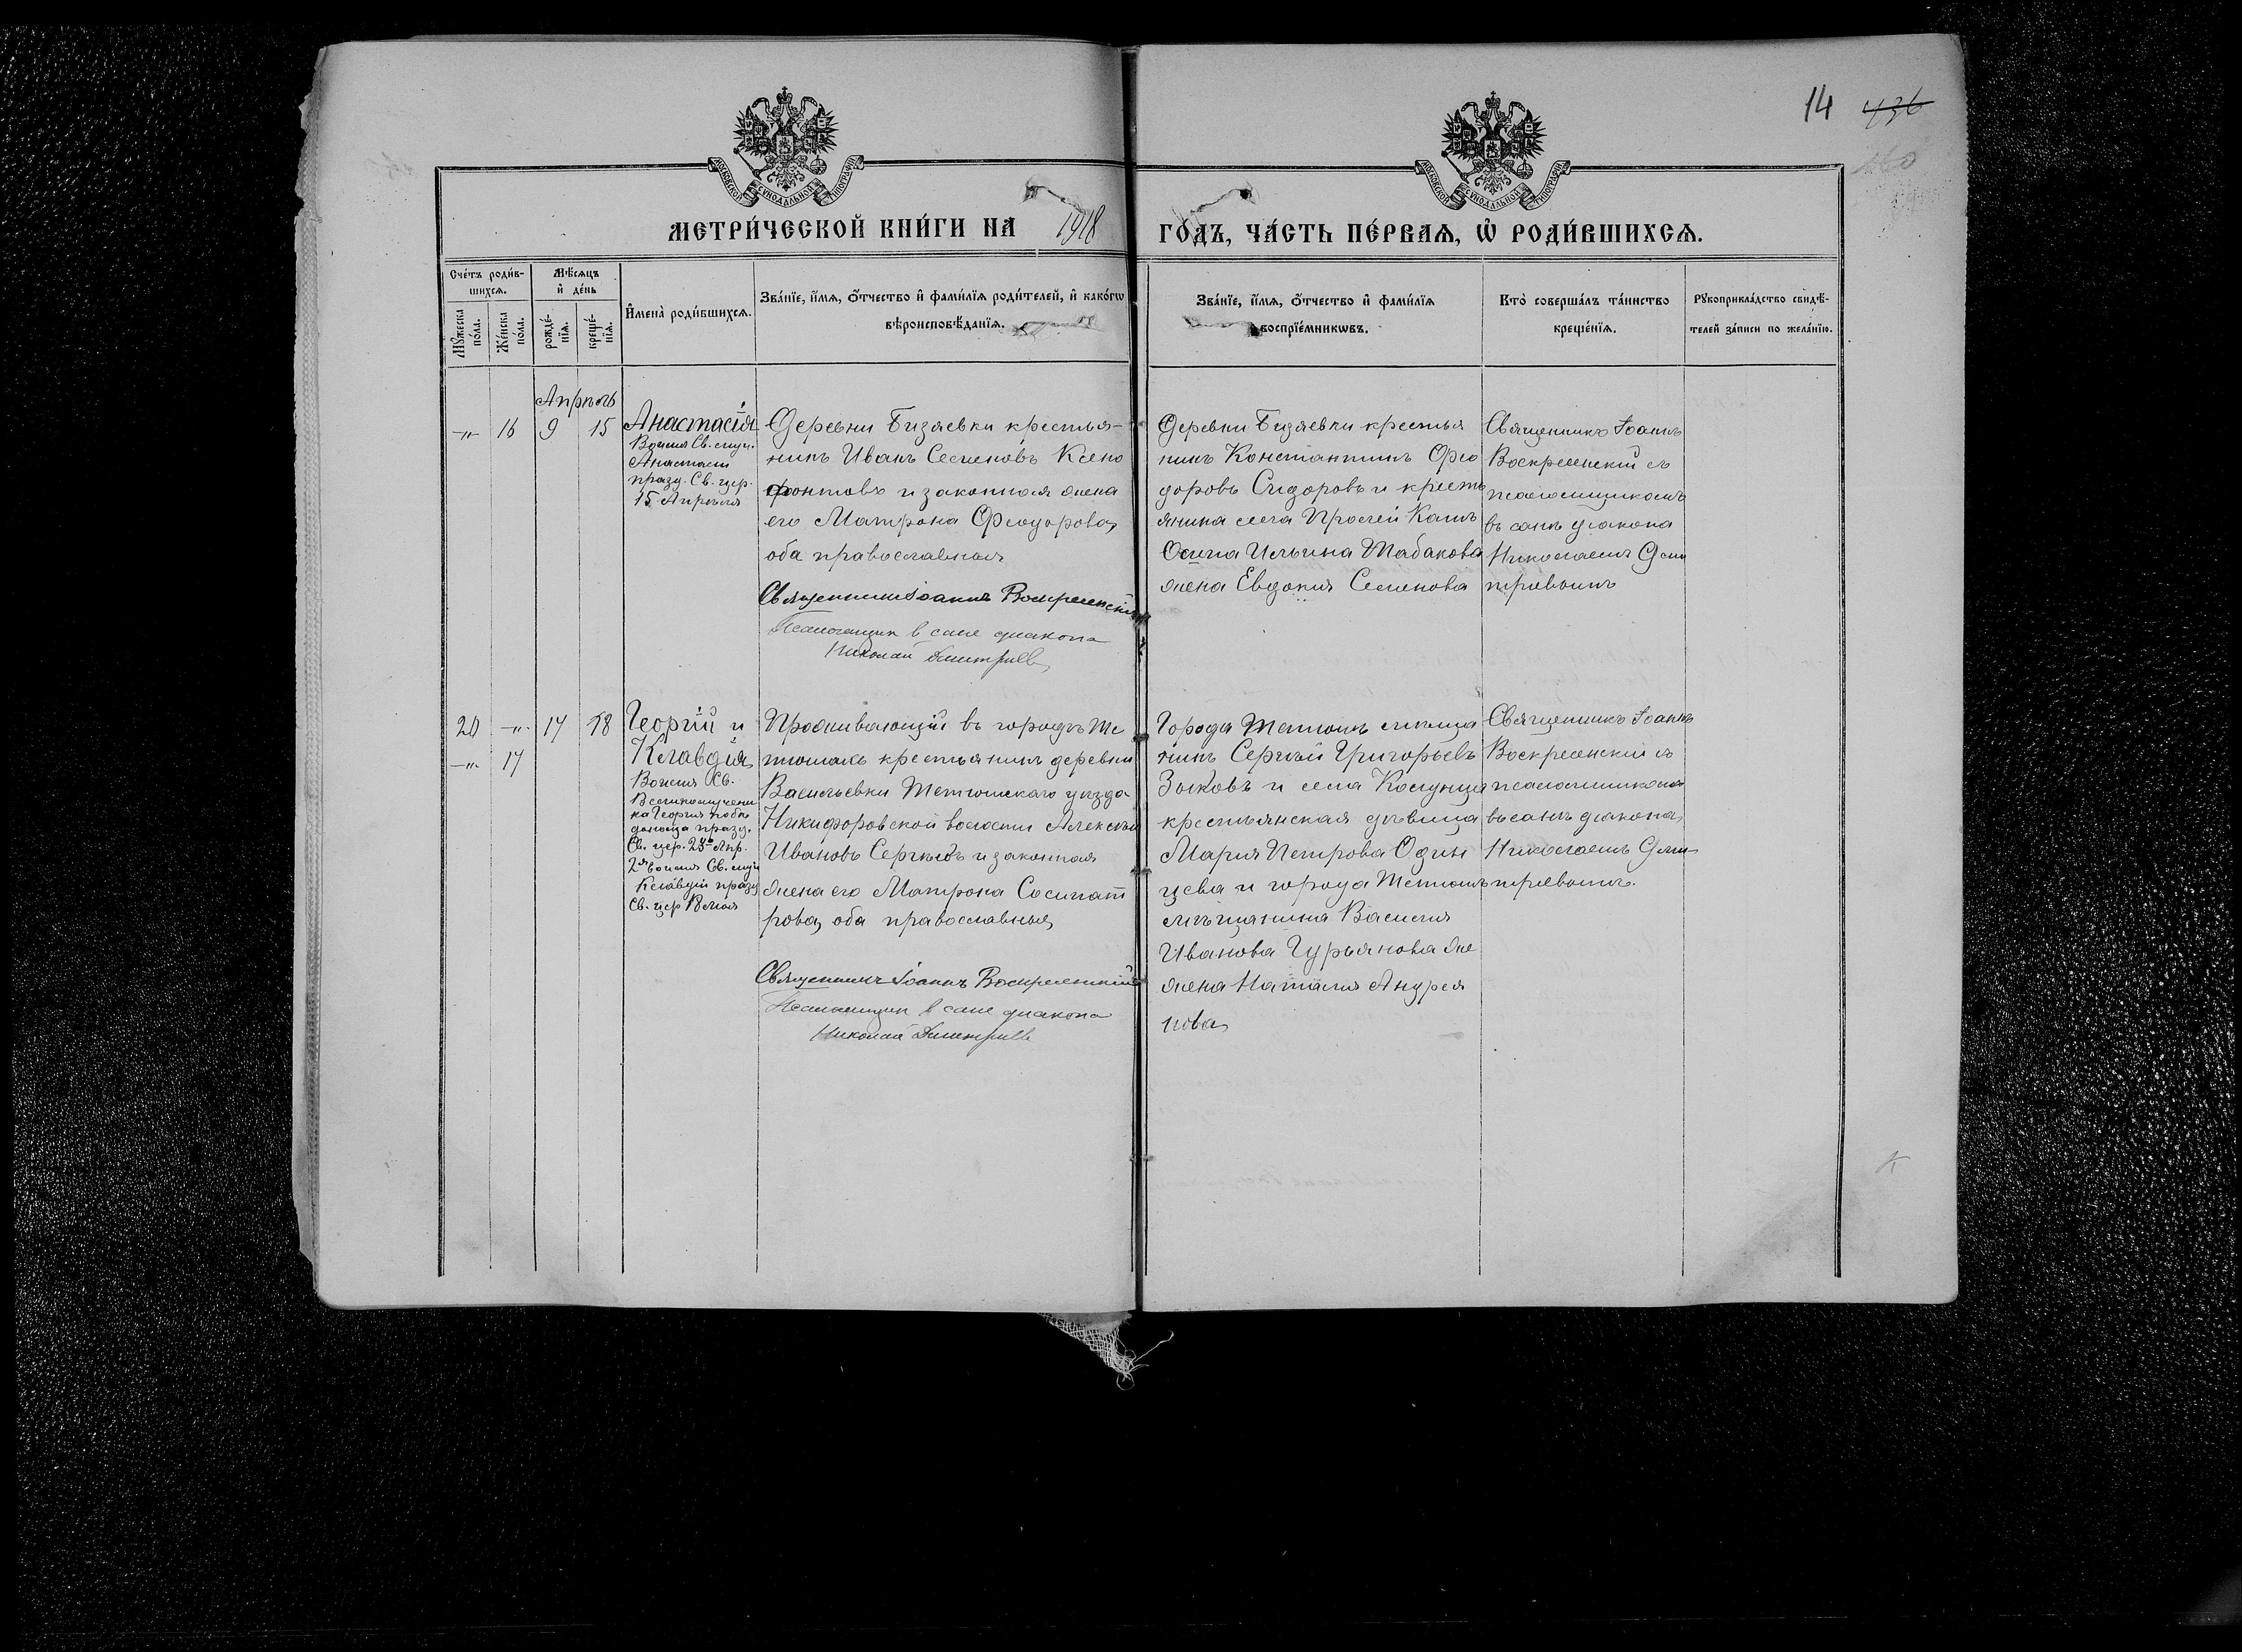 14 436
МОСКОВСКОЙ СѴНОДАЛЬНОЙ ТИПОГРАФІИ
МОСКОВСКОЙ СѴНОДАЛЬНОЙ ТИПОГРАФІИ
МЕТРИ́ЧЕСКОЙ КНИ́ГИ НА 1918 ГО́ДЪ, ЧА́СТЬ ПЕ́РВАѦ, Ѡ҆ РОДИ́ВШИХСѦ.
Сче́тъ роди́в-
шихсѧ.
Мꙋ́жеска
по́ла.
Же́нска
по́ла.
Мѣ́сѧцъ
и҆ де́нь
рожде́-
нїѧ.
креще́-
нїѧ.
И҆мена̀ роди́вшихсѧ.
Зва́нїе, и҆́мѧ, ѻ҆́тчество и҆ фами́лїѧ роди́телей, и҆ како́гѡ
вѣроисповѣ́данїѧ.
Зва́нїе, и҆́мѧ, ѻ҆́тчество и҆ фами́лїѧ
воспрїе́мникѡвъ.
Кто̀ соверша́лъ та́инство
креще́нїѧ.
Рꙋкоприкла́дство свидѣ́-
телей за́писи по жела́нїю.
Апрѣль
-"- 16 9 15
Анастасія
Во имя Св. муч.
Анастасіи
празд. Св. цер.
15 Апрѣля
Деревни Бизяевки крестья-
нинъ Иванъ Семеновъ Ксено
фонтовъ и законная жена
его Матрона Ѳеодорова,
оба православныя
Священникъ Іоаннъ Воскресенскій
Псаломщик в сане диакона
Николай Димитриев
Деревни Бизяевки крестья
нинъ Константинъ Ѳео
доровъ Сидоровъ и кресть
янина села Пролей Кашъ
Осипа Ильина Табакова
жена Евдокия Семенова
Священникъ Іоаннъ
Воскресенскій съ
псаломщикомъ
въ санѣ діакона
Николаемъ Дими
тріевымъ
20 -"- 17 18
-"- 17
Георгій и
Клавдія,
Во имя Св.
Великомучени
ка Георгія побѣ
доносца празд.
Св. цер. 23го Апр.
2я во имя Св. муч
Клавдіи празд
Св. цер
Проживающій въ городѣ Те
тюшахъ крестьянинъ деревни
Васильевки Тетюшскаго уѣзда
Никифоровской волости Алексѣй
Ивановъ Сергѣевъ и законная
жена его Матрона Сосипат
рова, оба православныя,
Священникъ Іоаннъ Воскресенскій
Псаломщик в сане диакона
Николай Димитриев
Города Тетюшъ мѣща
нинъ Сергѣй Григорьевъ
Зыковъ и села Колунца
крестьянская дѣвица
Марія Петрова Один
цева и города Тетюшъ
мѣщанина Василія
Иванова Гурьянова же
жена Наталія Андрея
нова,
Священникъ Іоаннъ
Воскресенскій съ
псаломщикомъ
въ санѣ діакона,
Николаемъ Дими-
тріевымъ.